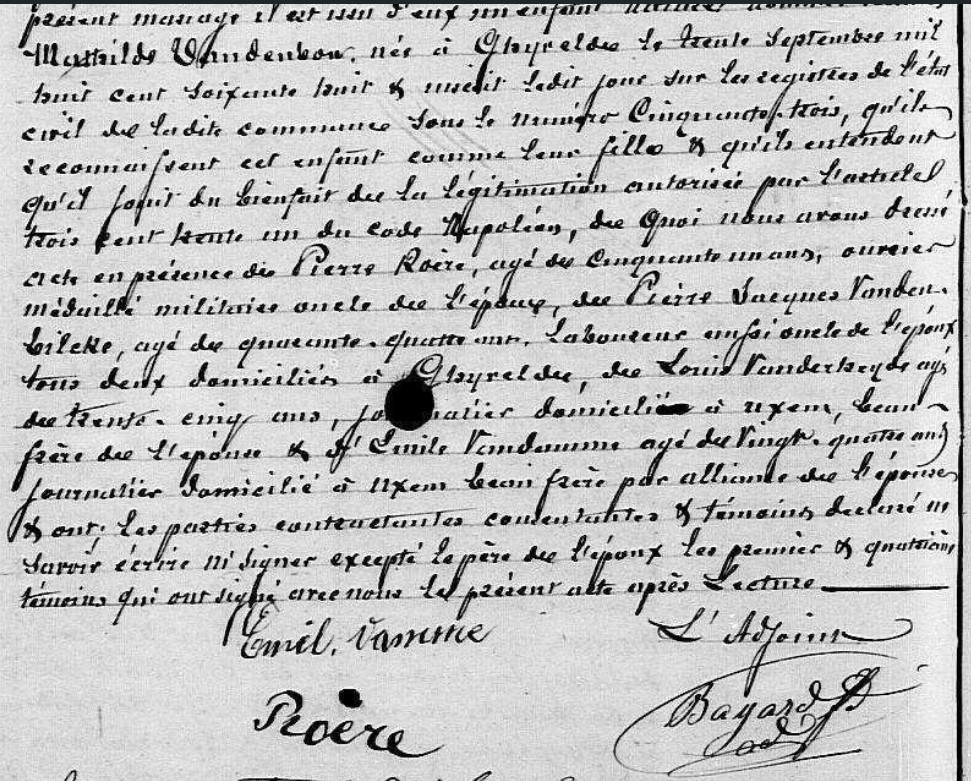 présent mariage il est issu d'eux un enfant
Mathilde Vandenbon, née à Ghyvelde le trente Septembre mil
huit cent soixante huit & inscrit ledit jour sur les registres de l'état
civil de ladite commune sous le numéro Cinquante-trois, qu'ils
reconnaissent cet enfant comme leur fille & qu'ils entendent
qu'il jouit du bienfait de la légitimation autorisée par l'article
trois cent trente un du code Napoléon, de quoi nous avons dressé
acte en présence de Pierre Roère, agé de Cinquante un ans, ouvrier
médaillé militaire oncle de l'époux, de Pierre Jacques Vanden-
bilcke, agé de quarante-quatre ans, laboureur aussi oncle de l'époux
tous deux domiciliés à Ghyvelde, de Louis Vanderheyde agé
de trente-cinq ans, journalier domicilié à Uxem, beau-
frère de l'épouse & d'Emile Vandamme agé de Vingt-quatre ans
journalier domicilié à Uxem beau frère par alliance de l'épouse
& ont, les parties contractantes consentantes & témoins déclaré ne
savoir écrire ni signer excepté le père de l'époux les premier & quatrième
témoins qui ont signé avec nous le présent acte après Lecture
Emil. Vamme
L'Adjoint
Roère
Bayard